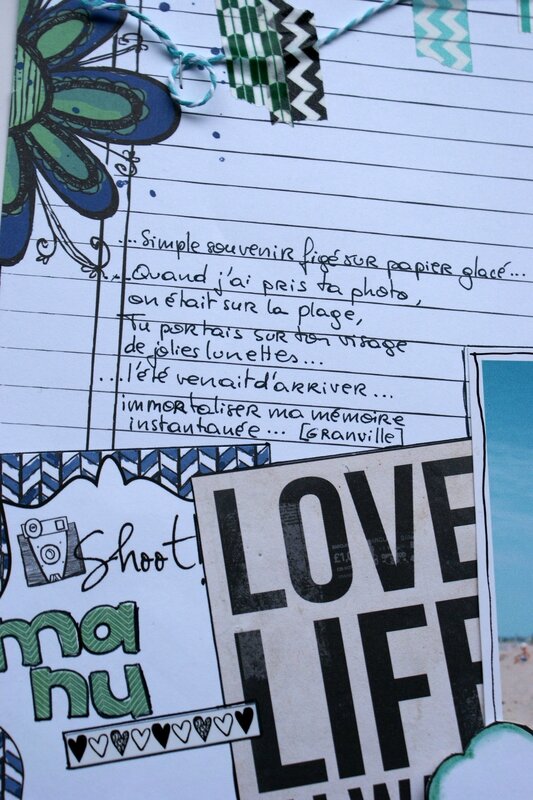 ...Simple souvenir figé sur papier glacé...
...Quand j'ai pris ta photo,
on était sur la plage,
Tu portais sur ton visage
de jolies lunettes...
...l'été venait d'arriver...
immortaliser ma mémoire
instantanée... [GRANVILLE]
Shoot!
ma
nu
LOVE
LIFE